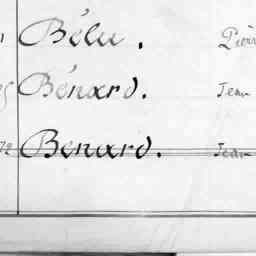 Bélu. Pierr
Bénard. Jean
72 Benard. Jean